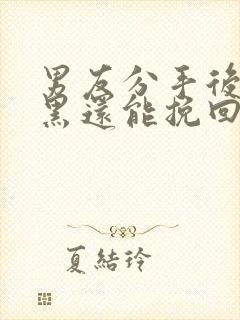 男友分手後
黑還能挽回
夏結玲